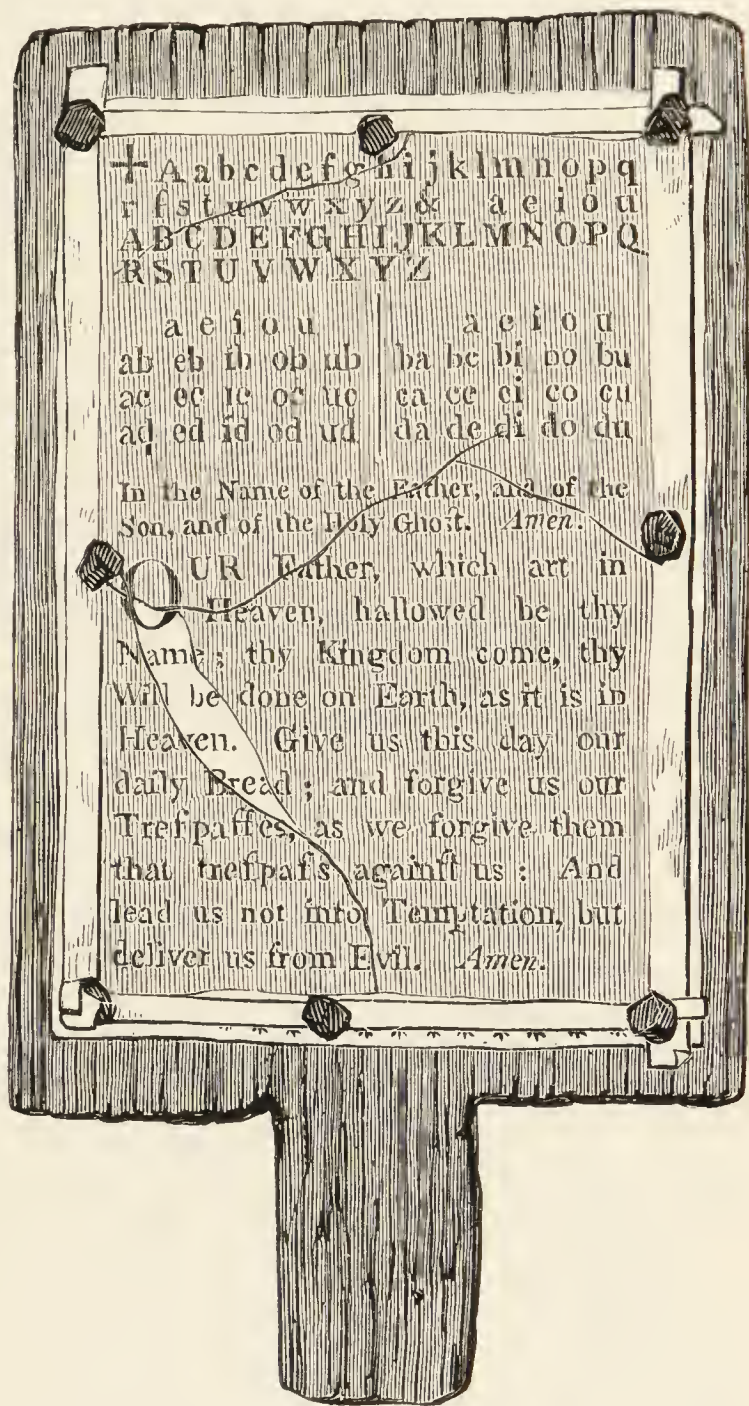 +Aabcdefghijklmnopq
rſstuvwxyz& aeiou
ABCDEFGHIJKLMNOPQ
RSTUVWXYZ
a e i o u a e i o u
ab eb ib ob ub ba be bi bo bu
ac ec ic oc uc ca ce ci co cu
ad ed id od ud da de di do du
In the Name of the Father, and of the
Son, and of the Holy Ghoſt. Amen.
OUR Father, which art in
Heaven, hallowed be thy
Name; thy Kingdom come, thy
Will be done on Earth, as it is in
Heaven. Give us this day our
daily Bread; and forgive us our
Treſpaſſes, as we forgive them
that treſpaſs againſt us: And
lead us not into Temptation, but
deliver us from Evil. Amen.